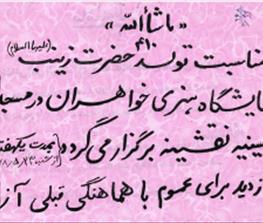 « ماشاأالله »
مناسبت تولد حضرت زینب (علیهاالسلام)
ایشگاه هنری خواهران در مسجد
سینیه نقشینه برگزار می‌گردد (بمدت یکهفته
زدید برای عموم با هماهنگی قبلی آز